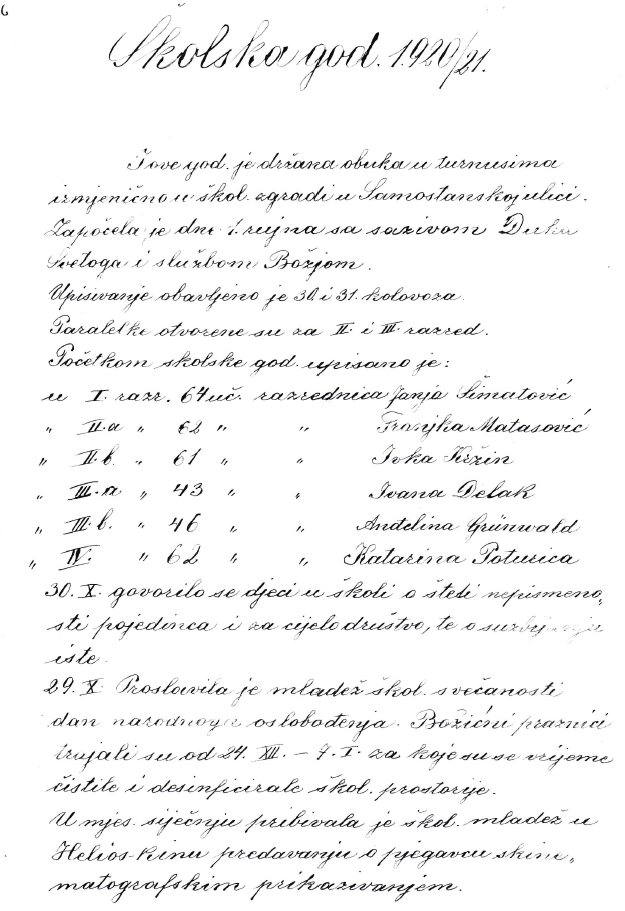 6
Školska god. 1920/21.
Tove god. je držana obuka u turnusima
izmjenično u škol. zgradi u Samostanskoj ulici.
Započela je dne 1. rujna sa sazivom Duha
Svetoga i službom Božjom.
Upisivanje obavljeno je 30 i 31. kolovoza.
Paralelke otvorene su za II. i III. razred.
Početkom skolske god. upisano je:
u I. razr. 64 uč. razrednica Janja Šimatović
" II.a " 62 " " Franjka Matasović
" II.b. " 61 " " Ivka Kržin
" III.a " 43 " " Ivana Delak
" III.b. " 46 " " Anđelina Grünwald
" IV. " 62 " " Katarina Poturica
30. X. govorilo se djeci u školi o šteti nepismeno„
sti pojedinca i za cijelo društvo, te o suzbijanju
iste.
29. X. Proslavila je mladež škol. svečanosti
dan narodnoga oslobođenja. Božićni praznici
trajali su od 24. XII. – 7. I. za koje su se vrijeme
čistile i desinficirale škol. prostorije.
U mjes. siječnju pribivala je škol. mladež u
Helios-kinu predavanju o pjegavcu s kine„
matografskim prikazivanjem.